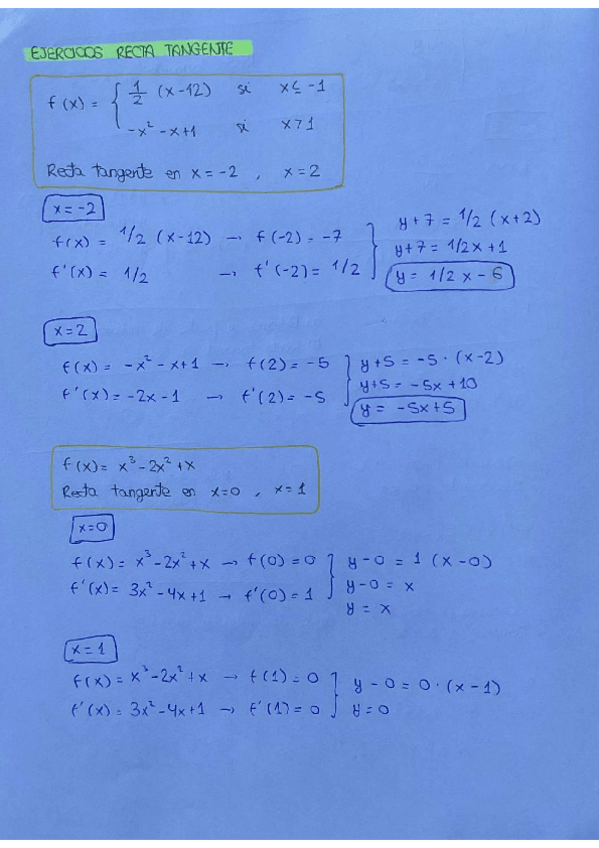 EJERCICIOS RECTA TANGENTE
f(x) = { 1/2 (x-12) si x ≤ -1
-x² - x+1 si x > 1
Recta tangente en x = -2 , x = 2
x = -2
f(x) = 1/2 (x-12) → f(-2) = -7
f'(x) = 1/2 → f'(-2) = 1/2
y+7 = 1/2 (x+2)
y+7 = 1/2x + 1
y = 1/2 x - 6
x = 2
f(x) = -x² - x+1 → f(2) = -5
f'(x) = -2x - 1 → f'(2) = -5
y+5 = -5 · (x-2)
y+5 = -5x + 10
y = -5x+5
f(x) = x³ - 2x² + x
Recta tangente en x=0 , x = 1
x=0
f(x) = x³ - 2x² + x → f(0) = 0
f'(x) = 3x² - 4x + 1 → f'(0) = 1
y - 0 = 1 (x - 0)
y - 0 = x
y = x
x = 1
f(x) = x³ - 2x² + x → f(1) = 0
f'(x) = 3x² - 4x + 1 → f'(1) = 0
y - 0 = 0 · (x - 1)
y = 0